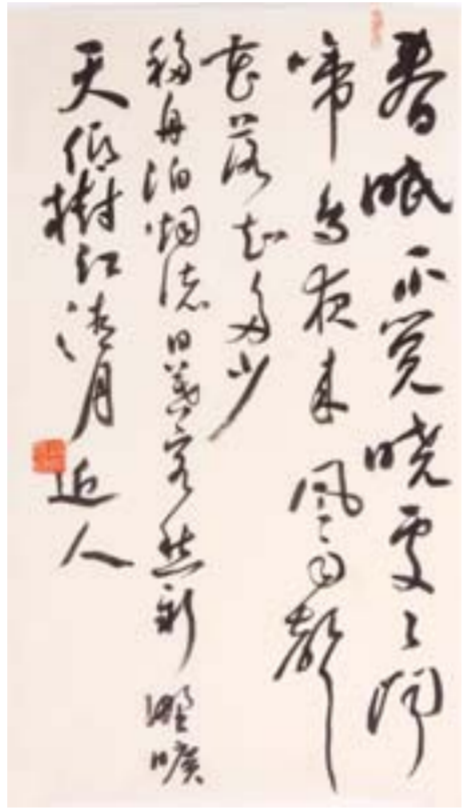 春眠不觉晓處々闻
啼鸟夜来风雨聲
花落知多少
移舟泊烟渚日暮客愁新野曠
天低樹江清月近人